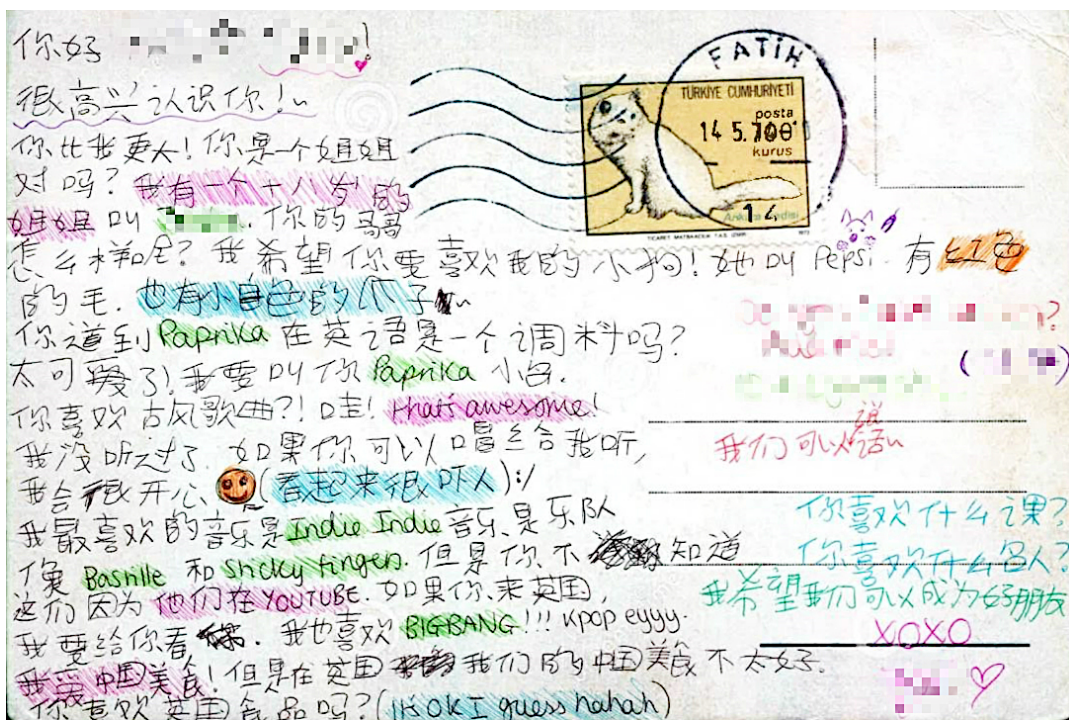 你好
很高兴认识你！~
你比我更大！你是一个姐姐
对吗？我有一个十八岁的
姐姐叫 . 你的哥哥
怎么样呢？我希望你要喜欢我的小狗！她叫 Pepsi. 有红色
的毛. 也有小白色的爪子~
你道到 Paprika 在英语是一个调料吗？
太可爱了！我要叫你 Paprika 小名.
你喜欢古风歌曲？！哇！that's awesome!
我没听过了. 如果你可以唱给我听,
我会很开心. (看起来很吓人):/
我最喜欢的音乐是 Indie Indie 音乐. 是乐队
像 Bastille 和 sticky fingers. 但是你不 知道
这们因为他们在 YOUTUBE. 如果你来英国,
我要给你看 . 我也喜欢 BIGBANG!!! kpop eyyy.
我 中国美食！但是在英国 我们的中国美食不太好.
你喜欢英国食品吗？(it's OK I guess hahah)
FATİH
TÜRKİYE CUMHURİYETİ
posta
14 5.
kurus
14
Ankara Kedisi
TİCARET MATBAACILIK T.A.S. İZMİR 1973
我们可以说话~
你喜欢什么课？
你喜欢什么名人？
我希望我们可以成为好朋友
XOXO